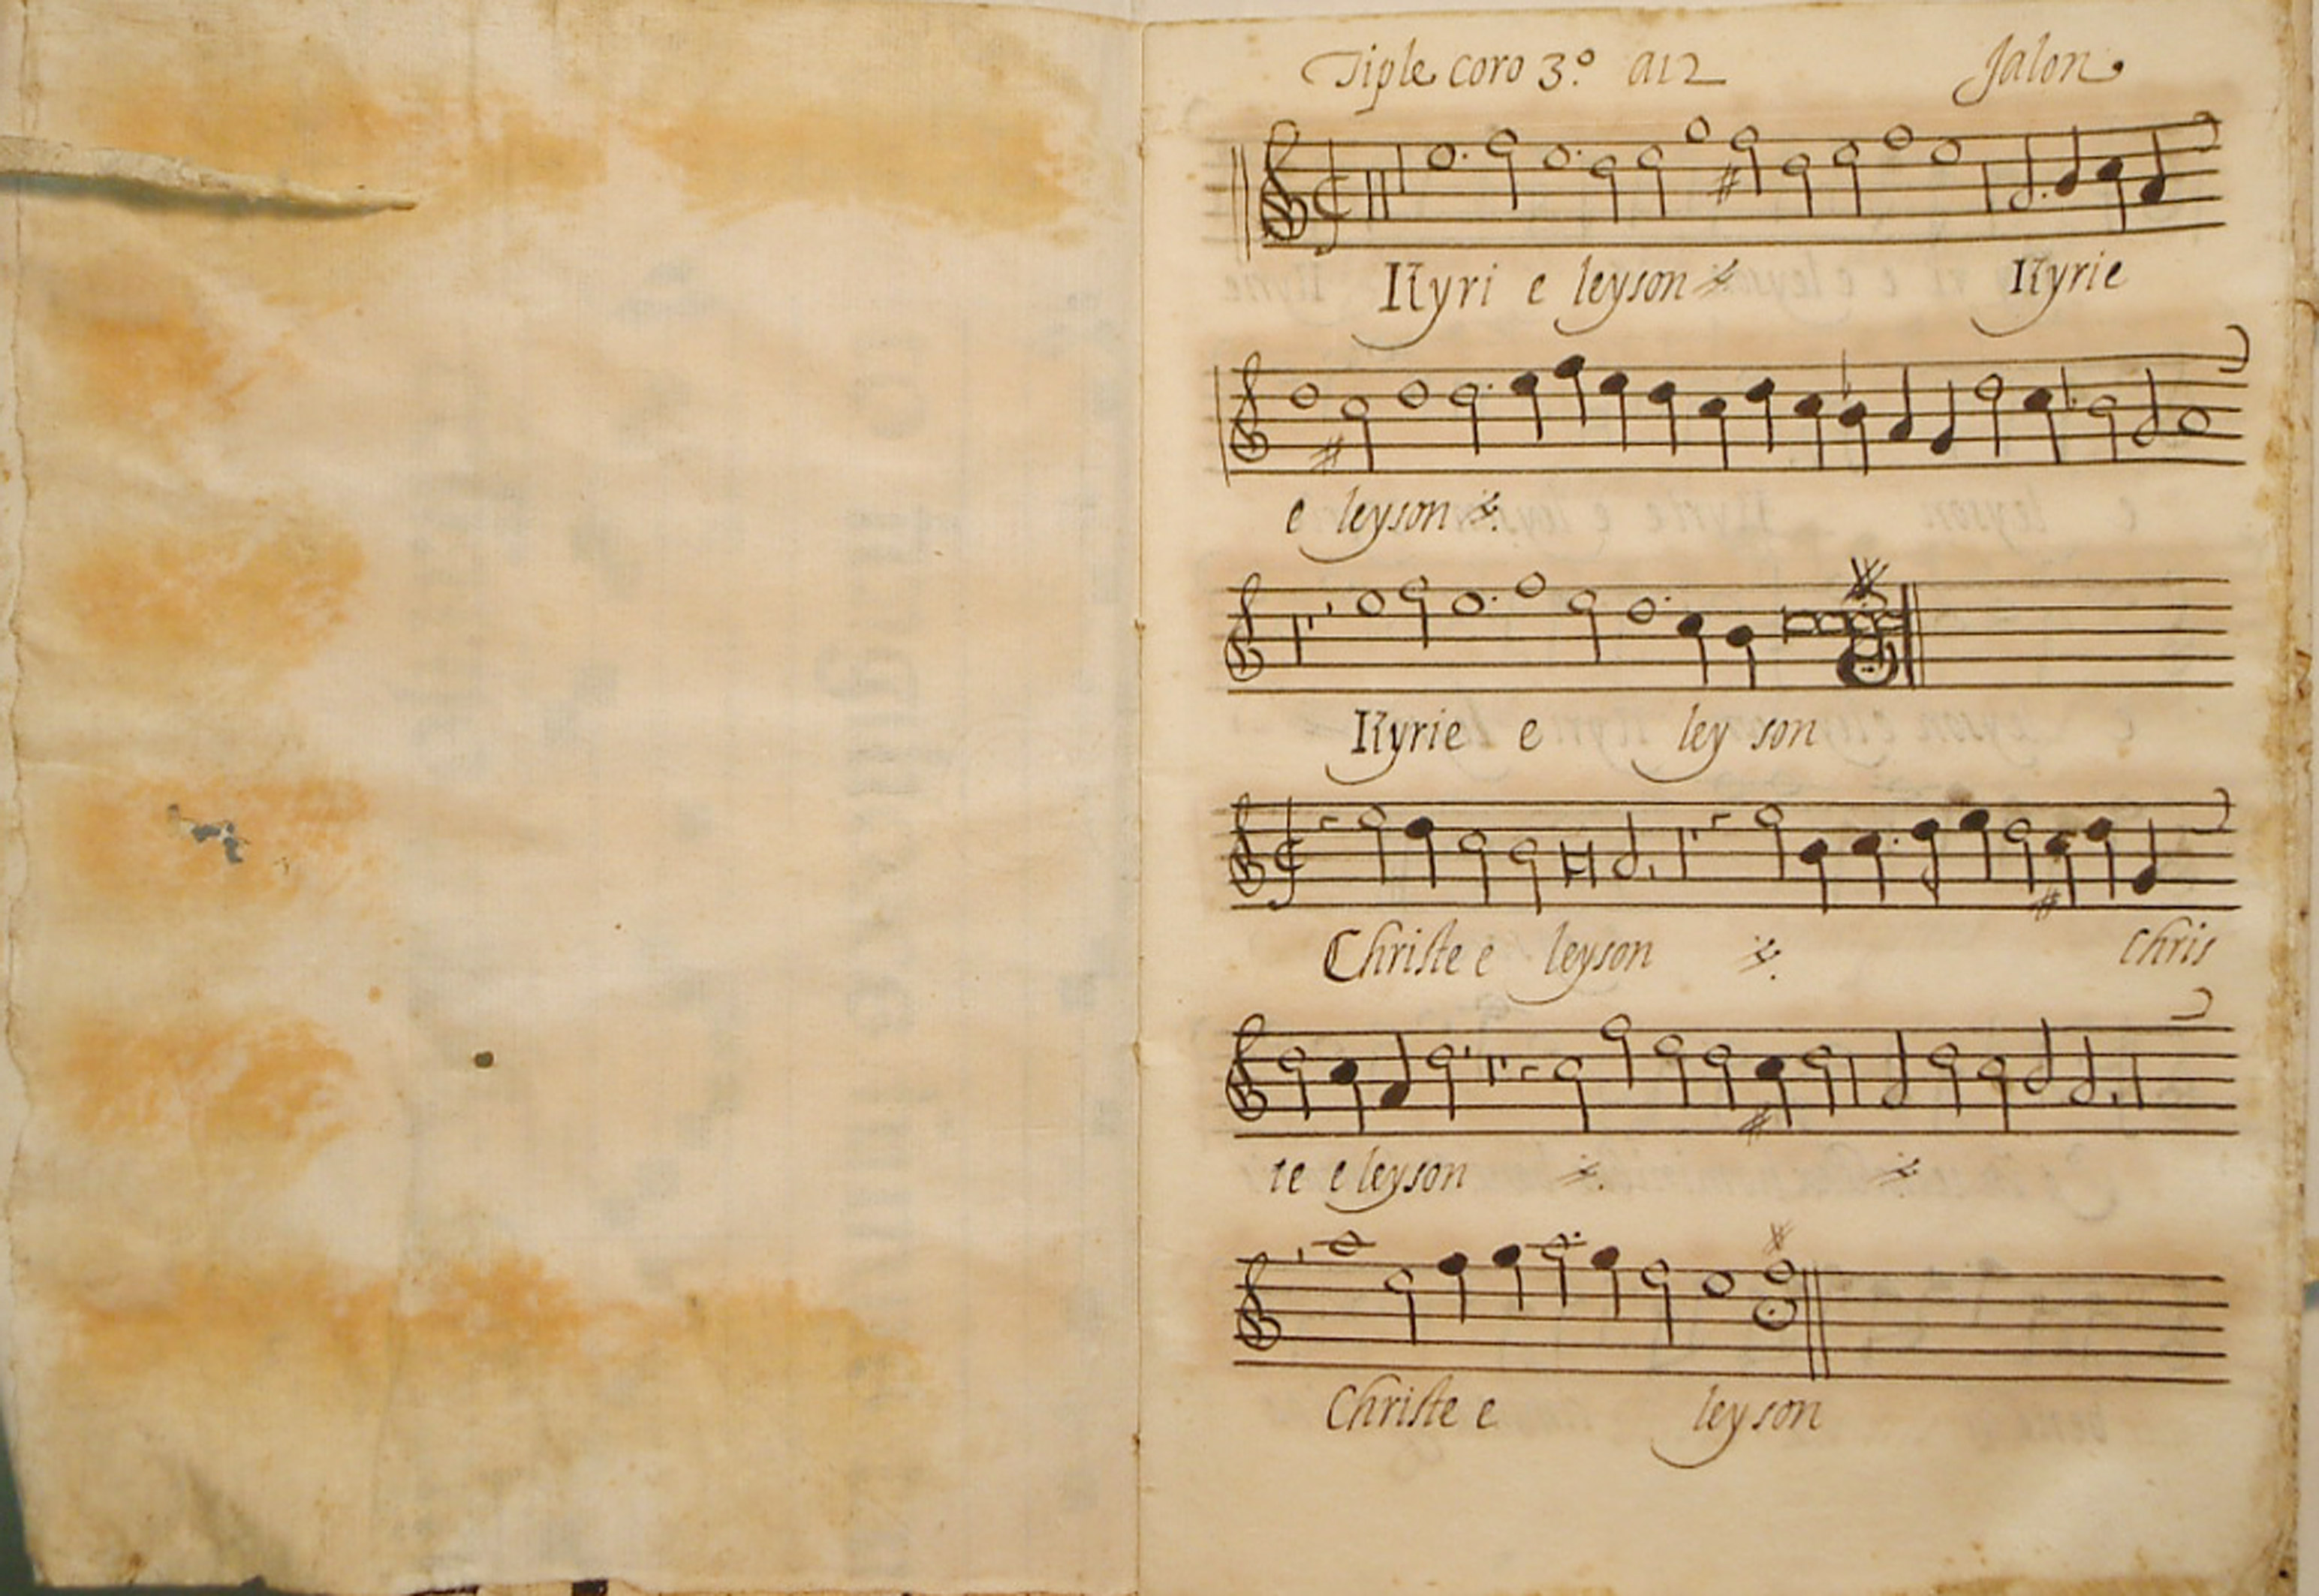 Tiple coro 3.º a12 Jalon
Kyri e leyson Kyrie
e leyson
Kyrie e ley son
Christe e leyson chris
te e leyson
Christe e leyson